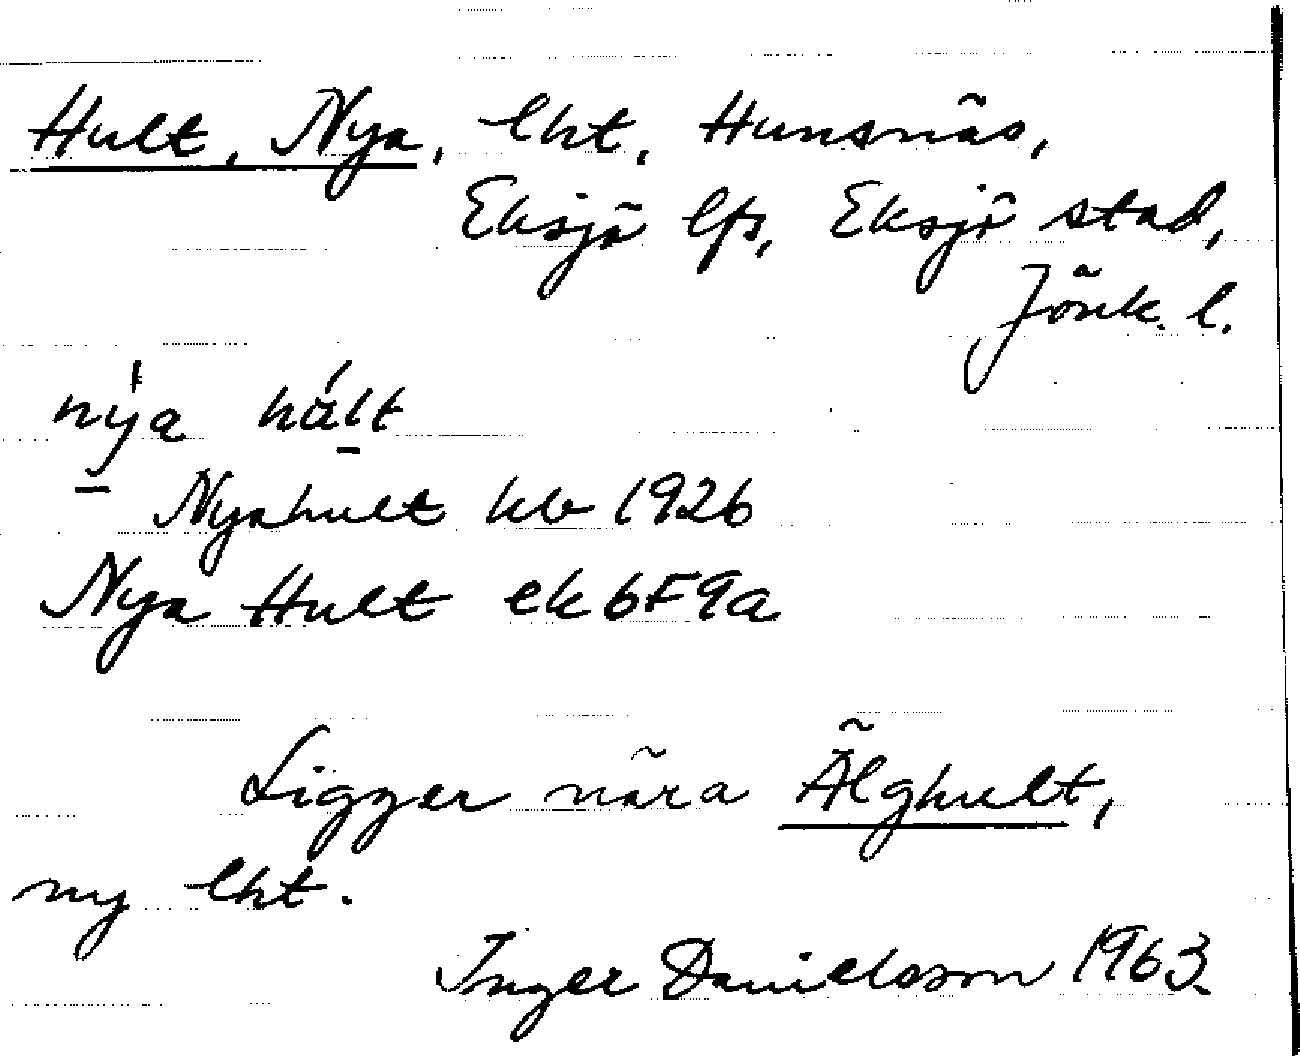 Hult, Nya, lht, Hunsnäs,
Eksjö lfs, Eksjö stad,
Jönk. l.
nýa hált
Nyahult kb 1926
Nya Hult ek 6F9a
Ligger nära Älghult,
ny lht.
Inger Danielsson 1963